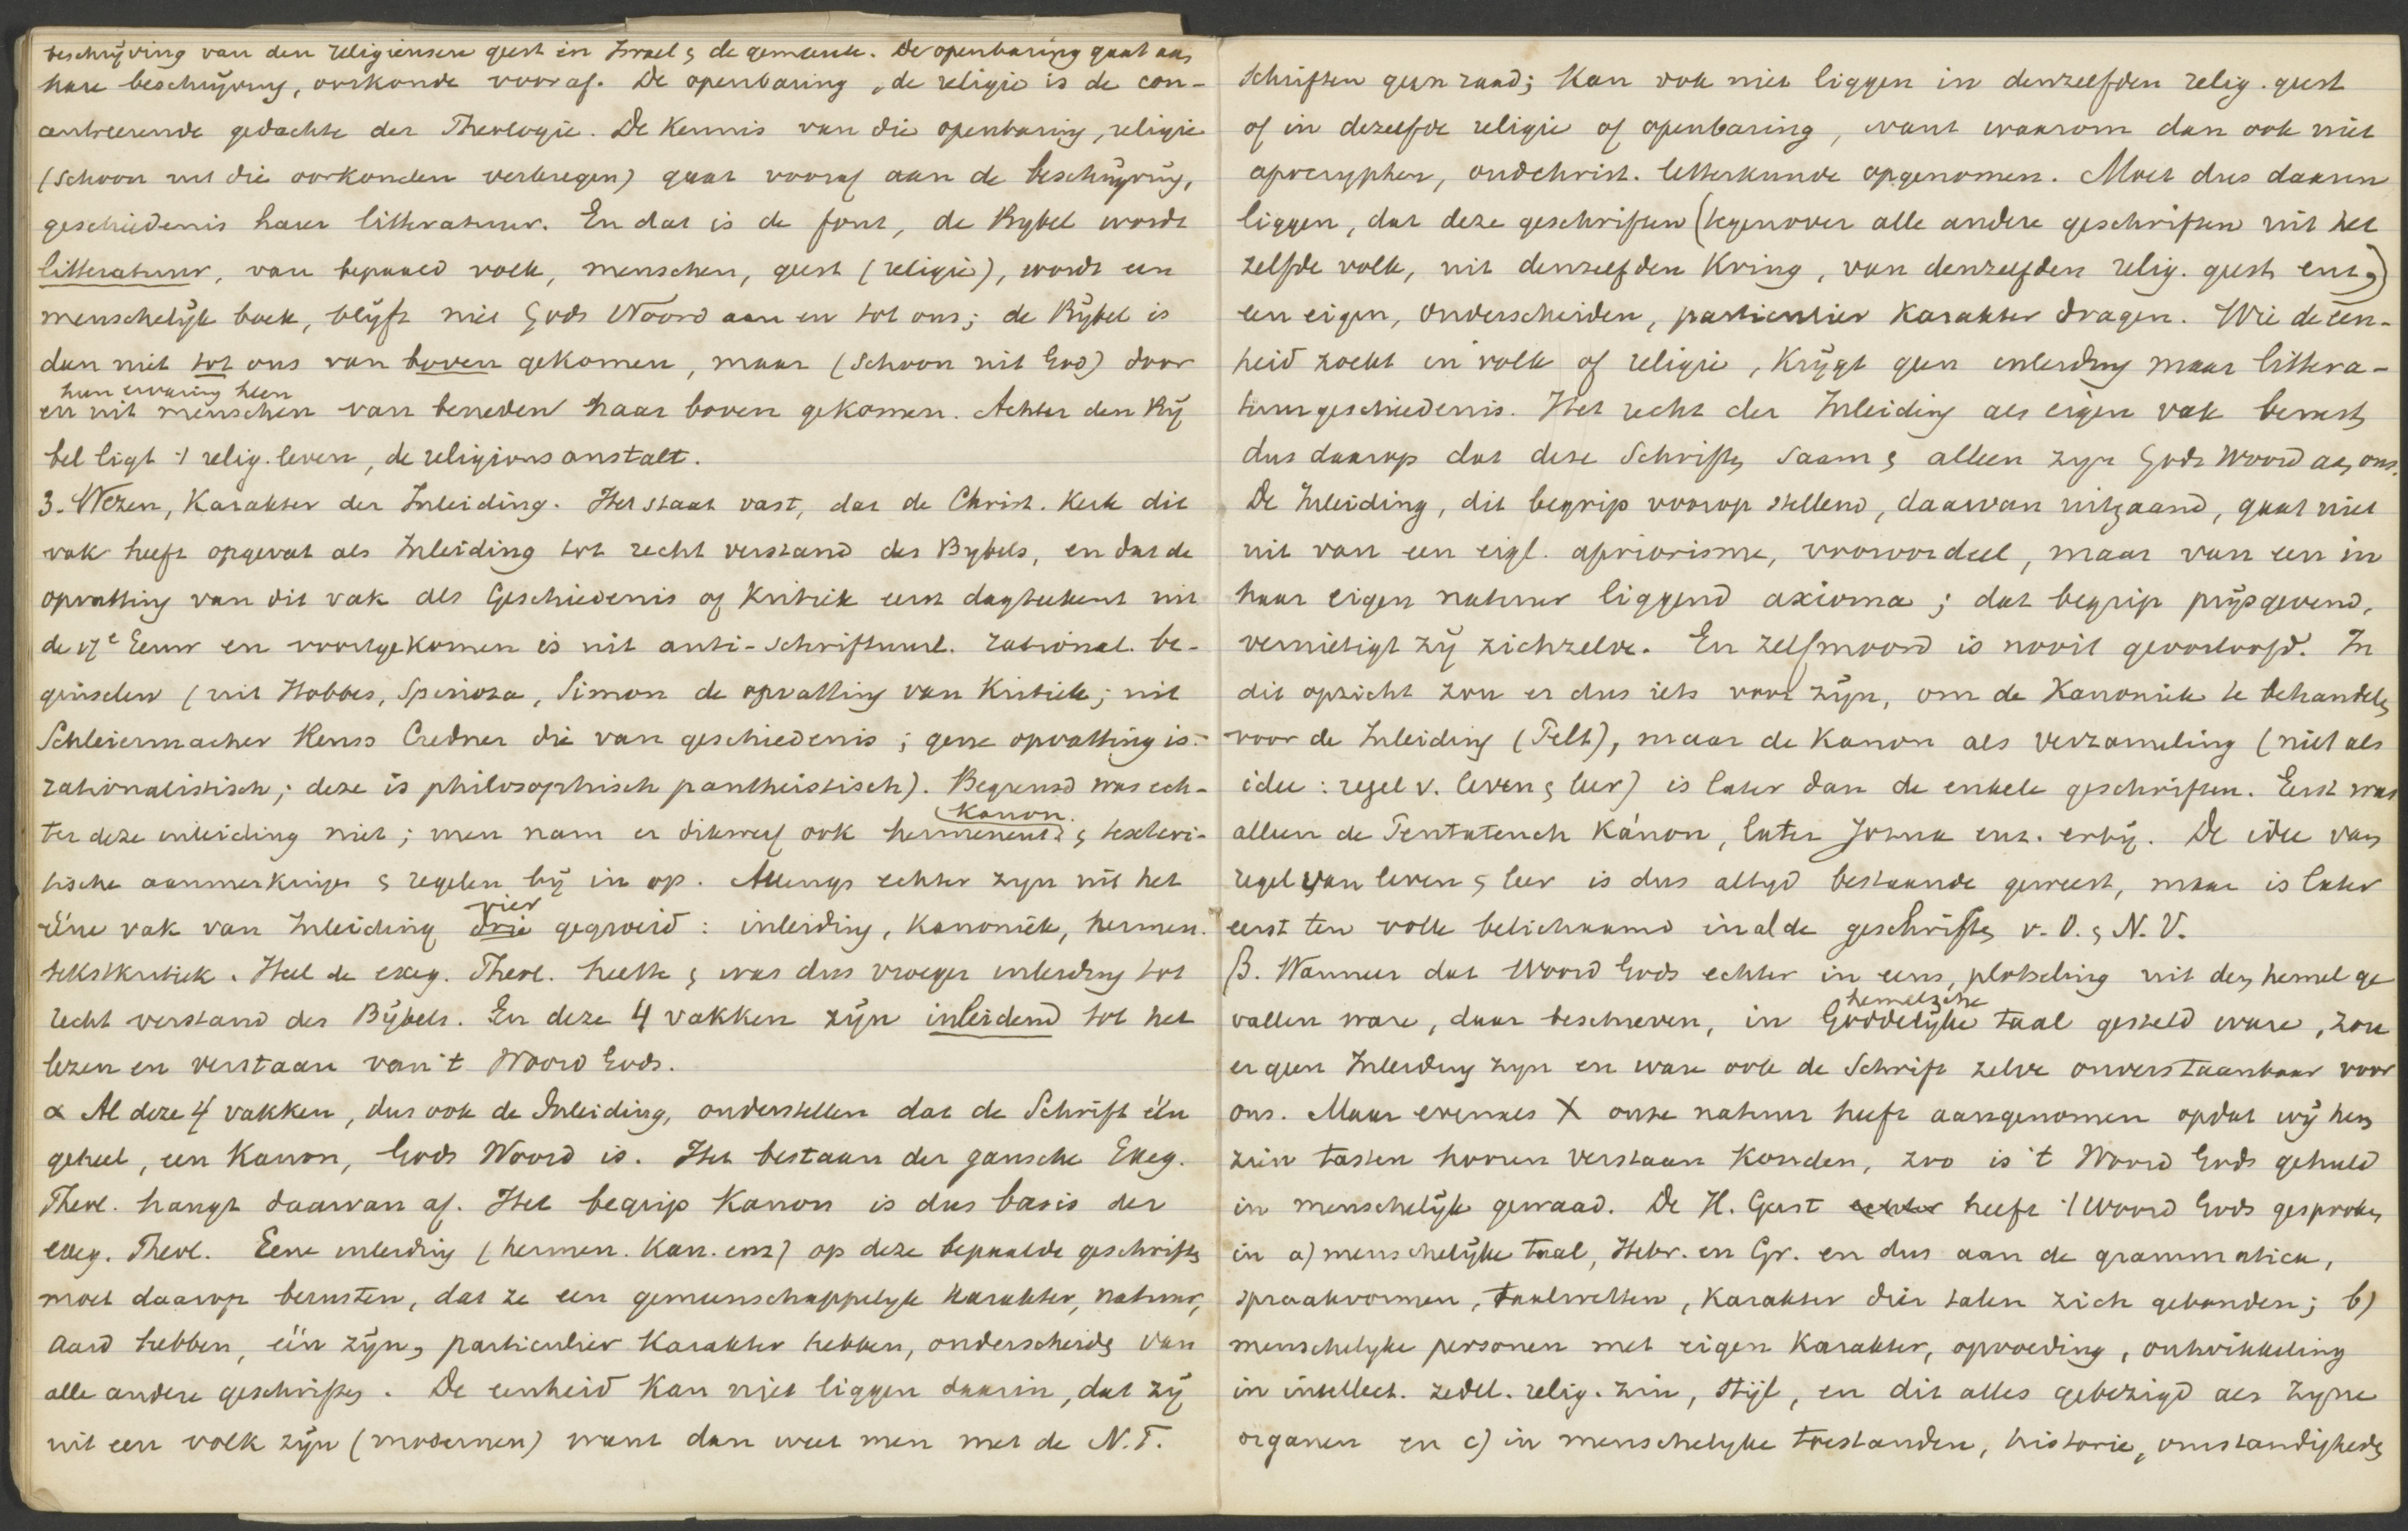 beschrijving van den religieusen geest in Israel & de gemeente. De openbaring gaat aan
hare beschrijving, oorkonde vooraf. De openbaring, de religie is de con-
centreerende gedachte der Theologie. De kennis van die openbaring, religie
(schoon uit die oorkonden verkregen) gaat vooraf aan de beschrijving,
geschiedenis harer litteratuur. En dat is de fout, de Bybel wordt
litteratuur, van bepaald volk, menschen, geest (religie), wordt een
menschelijk boek, blijft niet Gods Woord aan en tot ons; de Bijbel is
dan niet tot ons van boven gekomen, maar (schoon uit God) door
hun ervaring heen
en uit menschen van beneden naar boven gekomen. Achter den Bij
bel ligt 't relig. leven, de religionsanstalt.
3. Wezen, Karakter der Inleiding. Het staat vast, dat de Christ. Kerk dit
vak heeft opgevat als Inleiding tot recht verstand des Bybels, en dat de
opvatting van dit vak als Geschiedenis of Kritiek eerst dagteekent uit
de 17e Eeuw en voortgekomen is uit anti-schriftuurl. rational. be-
ginselen (uit Hobbes, Spinoza, Simon de opvatting van Kritiek; uit
Schleiermacher Reuss Credner die van geschiedenis; gene opvatting is
rationalistisch; deze is philosophisch pantheistisch). Begrensd was ech-
Kanon.
ter deze inleiding niet; men nam er dikwerf ook hermeneut. & tekstkri-
tische aanmerkingen & regelen bij in op. Allengs echter zyn uit het
vier
ééne vak van Inleiding drie gegroeid: inleiding, kanoniek, hermen.
tekstkritiek. Heel de exeg. Theol. heette & was dus vroeger inleiding tot
recht verstand des Bijbels. En deze 4 vakken zijn inleidend tot het
lezen en verstaan van 't Woord Gods.
α Al deze 4 vakken, dus ook de Inleiding, onderstellen dat de Schrift één
geheel, een Kanon, Gods Woord is. Het bestaan der gansche Exeg.
Theol. hangt daarvan af. Het begrip Kanon is dus basis der
exeg. Theol. Eene inleiding (hermen. Kan. enz) op deze bepaalde geschriften
moet daarop berusten, dat ze een gemeenschappelyk karakter, natuur,
aard hebben, één zijn, particulier karakter hebben, onderscheiden van
alle andere geschriften. De eenheid kan niet liggen daarin, dat zij
uit een volk zijn (modernen) want dan weet men met de N.T.
schriften geen raad; kan ook niet liggen in denzelfden relig. geest
of in dezelfde religie of openbaring, want waarom dan ook niet
apocryphen, oudchrist. letterkunde opgenomen. Moet dus daarin
liggen, dat deze geschriften (tegenover alle andere geschriften uit het
zelfde volk, uit denzelfden Kring, van denzelfden relig. geest enz,)
een eigen, onderscheiden, particulier karakter dragen. Wie de een-
heid zoekt in volk of religie, krijgt geen inleiding maar littera-
tuurgeschiedenis. Het recht der Inleiding als eigen vak berust
dus daarop dat deze Schriften saam & alleen zyn Gods Woord aan ons.
De Inleiding, dit begrip voorop stellend, daarvan uitgaand, gaat niet
uit van een eigl. apriorisme, vooroordeel, maar van een in
haar eigen natuur liggend axioma; dat begrip prijsgevend,
vernietigt zij zichzelve. En zelfmoord is nooit geoorloofd. In
dit opzicht zou er dus iets voor zijn, om de Kanoniek te behandelen
voor de Inleiding (Pelt), maar de Kanon als verzameling (niet als
idee: regel v. leven & leer) is later dan de enkele geschriften. Eerst was
alleen de Pentateuch Kánon, later Jozua enz. erbij. De idee van
regel van leven & leer is dus altyd bestaande geweest, maar is later
eerst ten volle belichaamd in al de geschriften v. O. & N. V.
β. Wanneer dat Woord Gods echter in eens, plotseling uit den hemel ge
hemelsche
vallen ware, daar beschreven, in Goddelijke taal gesteld ware, zou
er geen Inleiding zyn en ware ook de Schrift zelve onverstaanbaar voor
ons. Maar evenals X onze natuur heeft aangenomen opdat wij hem
zien tasten hooren verstaan konden, zoo is 't Woord Gods gehuld
in menschelijk gewaad. De H. Geest echter heeft 't Woord Gods gesproken
in a) menschelijke taal, Hebr. en Gr. en dus aan de grammatica,
spraakvormen, taalwetten, karakter dier talen zich gebonden; b)
menschelyke personen met eigen karakter, opvoeding, ontwikkeling
in intellect. zedel. relig. zin, stijl, en dit alles gebezigd als zyne
organen en c) in menschelyke toestanden, historie, omstandigheden